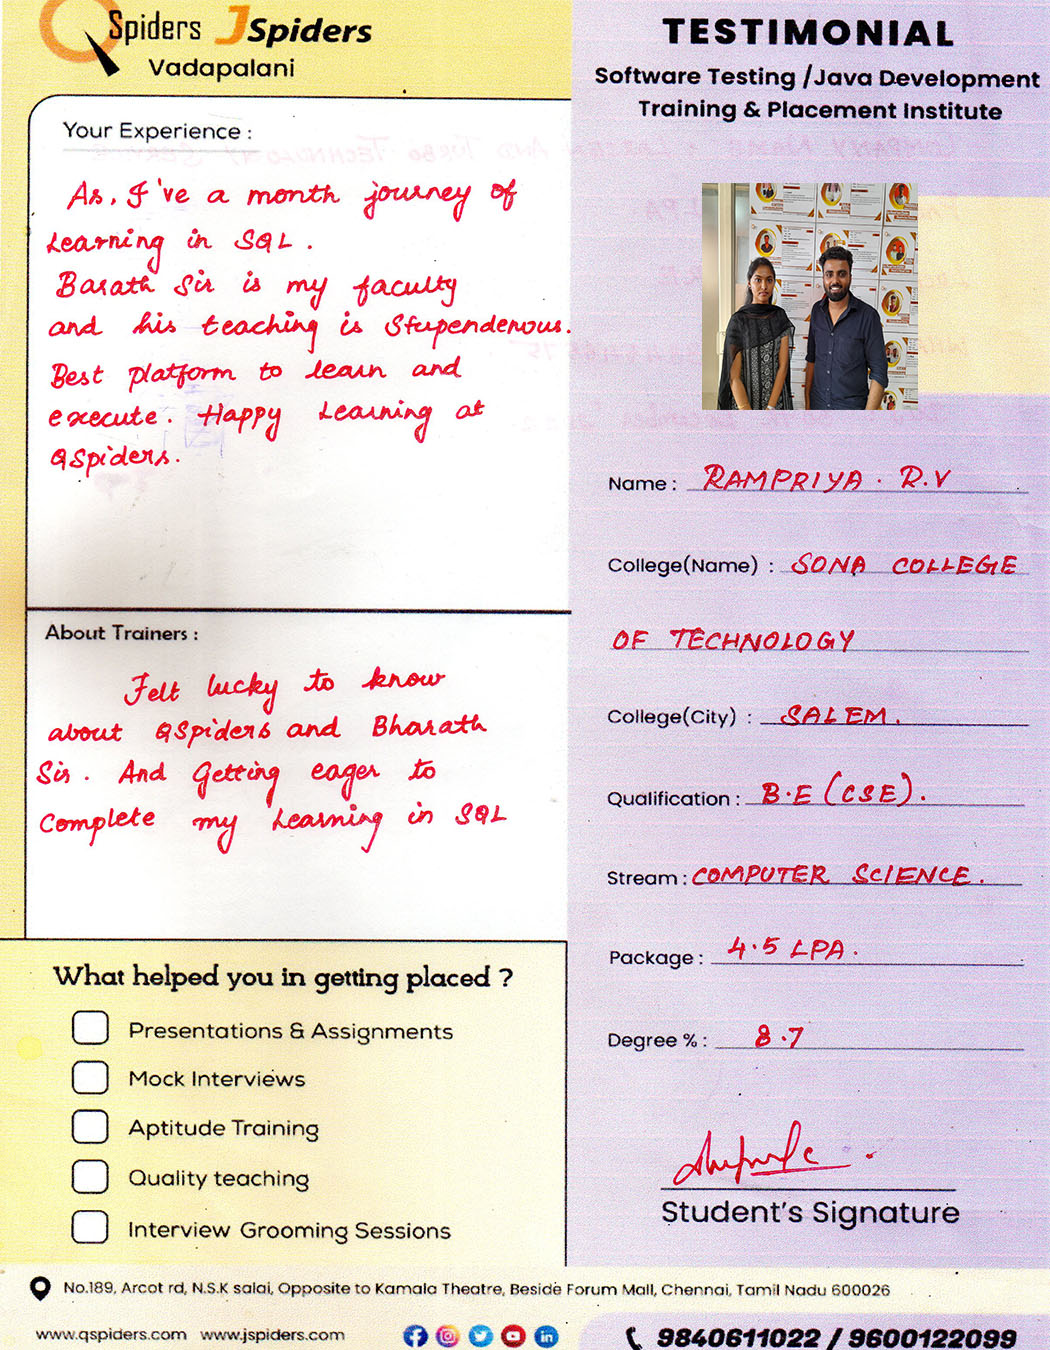 QSpiders JSpiders
Vadapalani
Your Experience :
As, I've a month journey of
Learning in SQL.
Barath Sir is my faculty
and his teaching is Stupenderous.
Best platform to learn and
execute. Happy Learning at
QSpiders.
About Trainers :
Felt lucky to know
about QSpiders and Bharath
Sir. And Getting eager to
Complete my Learning in SQL
What helped you in getting placed ?
Presentations & Assignments
Mock Interviews
Aptitude Training
Quality teaching
Interview Grooming Sessions
TESTIMONIAL
Software Testing /Java Development
Training & Placement Institute
Name : RAMPRIYA . R.V
College(Name) : SONA COLLEGE
OF TECHNOLOGY
College(City) : SALEM.
Qualification : B.E (CSE).
Stream : COMPUTER SCIENCE.
Package : 4.5 LPA.
Degree % : 8.7
Student's Signature
No.189, Arcot rd, N.S.K salai, Opposite to Kamala Theatre, Beside Forum Mall, Chennai, Tamil Nadu 600026
www.qspiders.com www.jspiders.com
9840611022 / 9600122099